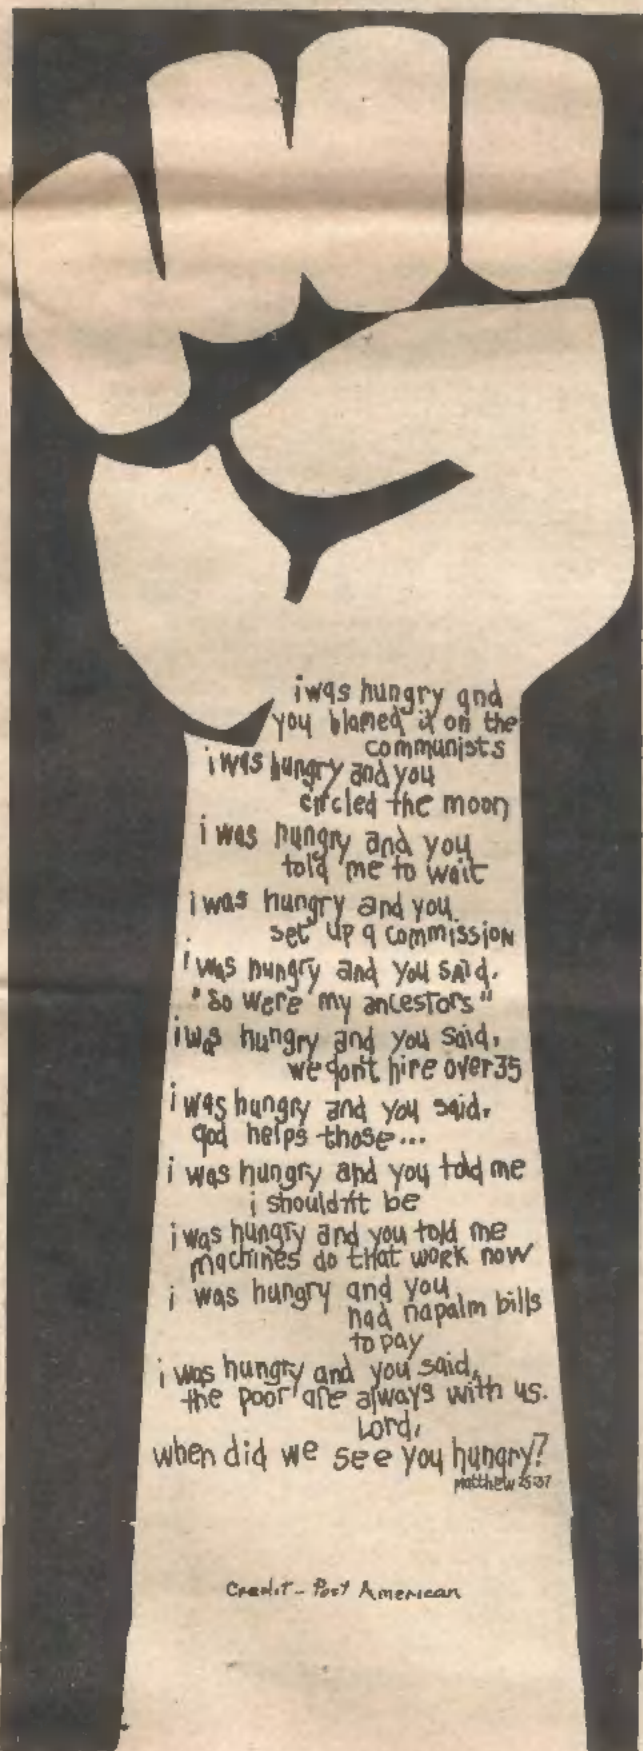 i was hungry and
you blamed it on the
communists
i was hungry and you
circled the moon
i was hungry and you
told me to wait
i was hungry and you
set up a commission
i was hungry and you said,
"so were my ancestors"
i was hungry and you said,
we don't hire over 35
i was hungry and you said,
god helps those...
i was hungry and you told me
i shouldn't be
i was hungry and you told me
machines do that work now
i was hungry and you
had napalm bills
to pay
i was hungry and you said,
the poor are always with us.
Lord,
when did we see you hungry?
matthew 25:37
Credit - Post American